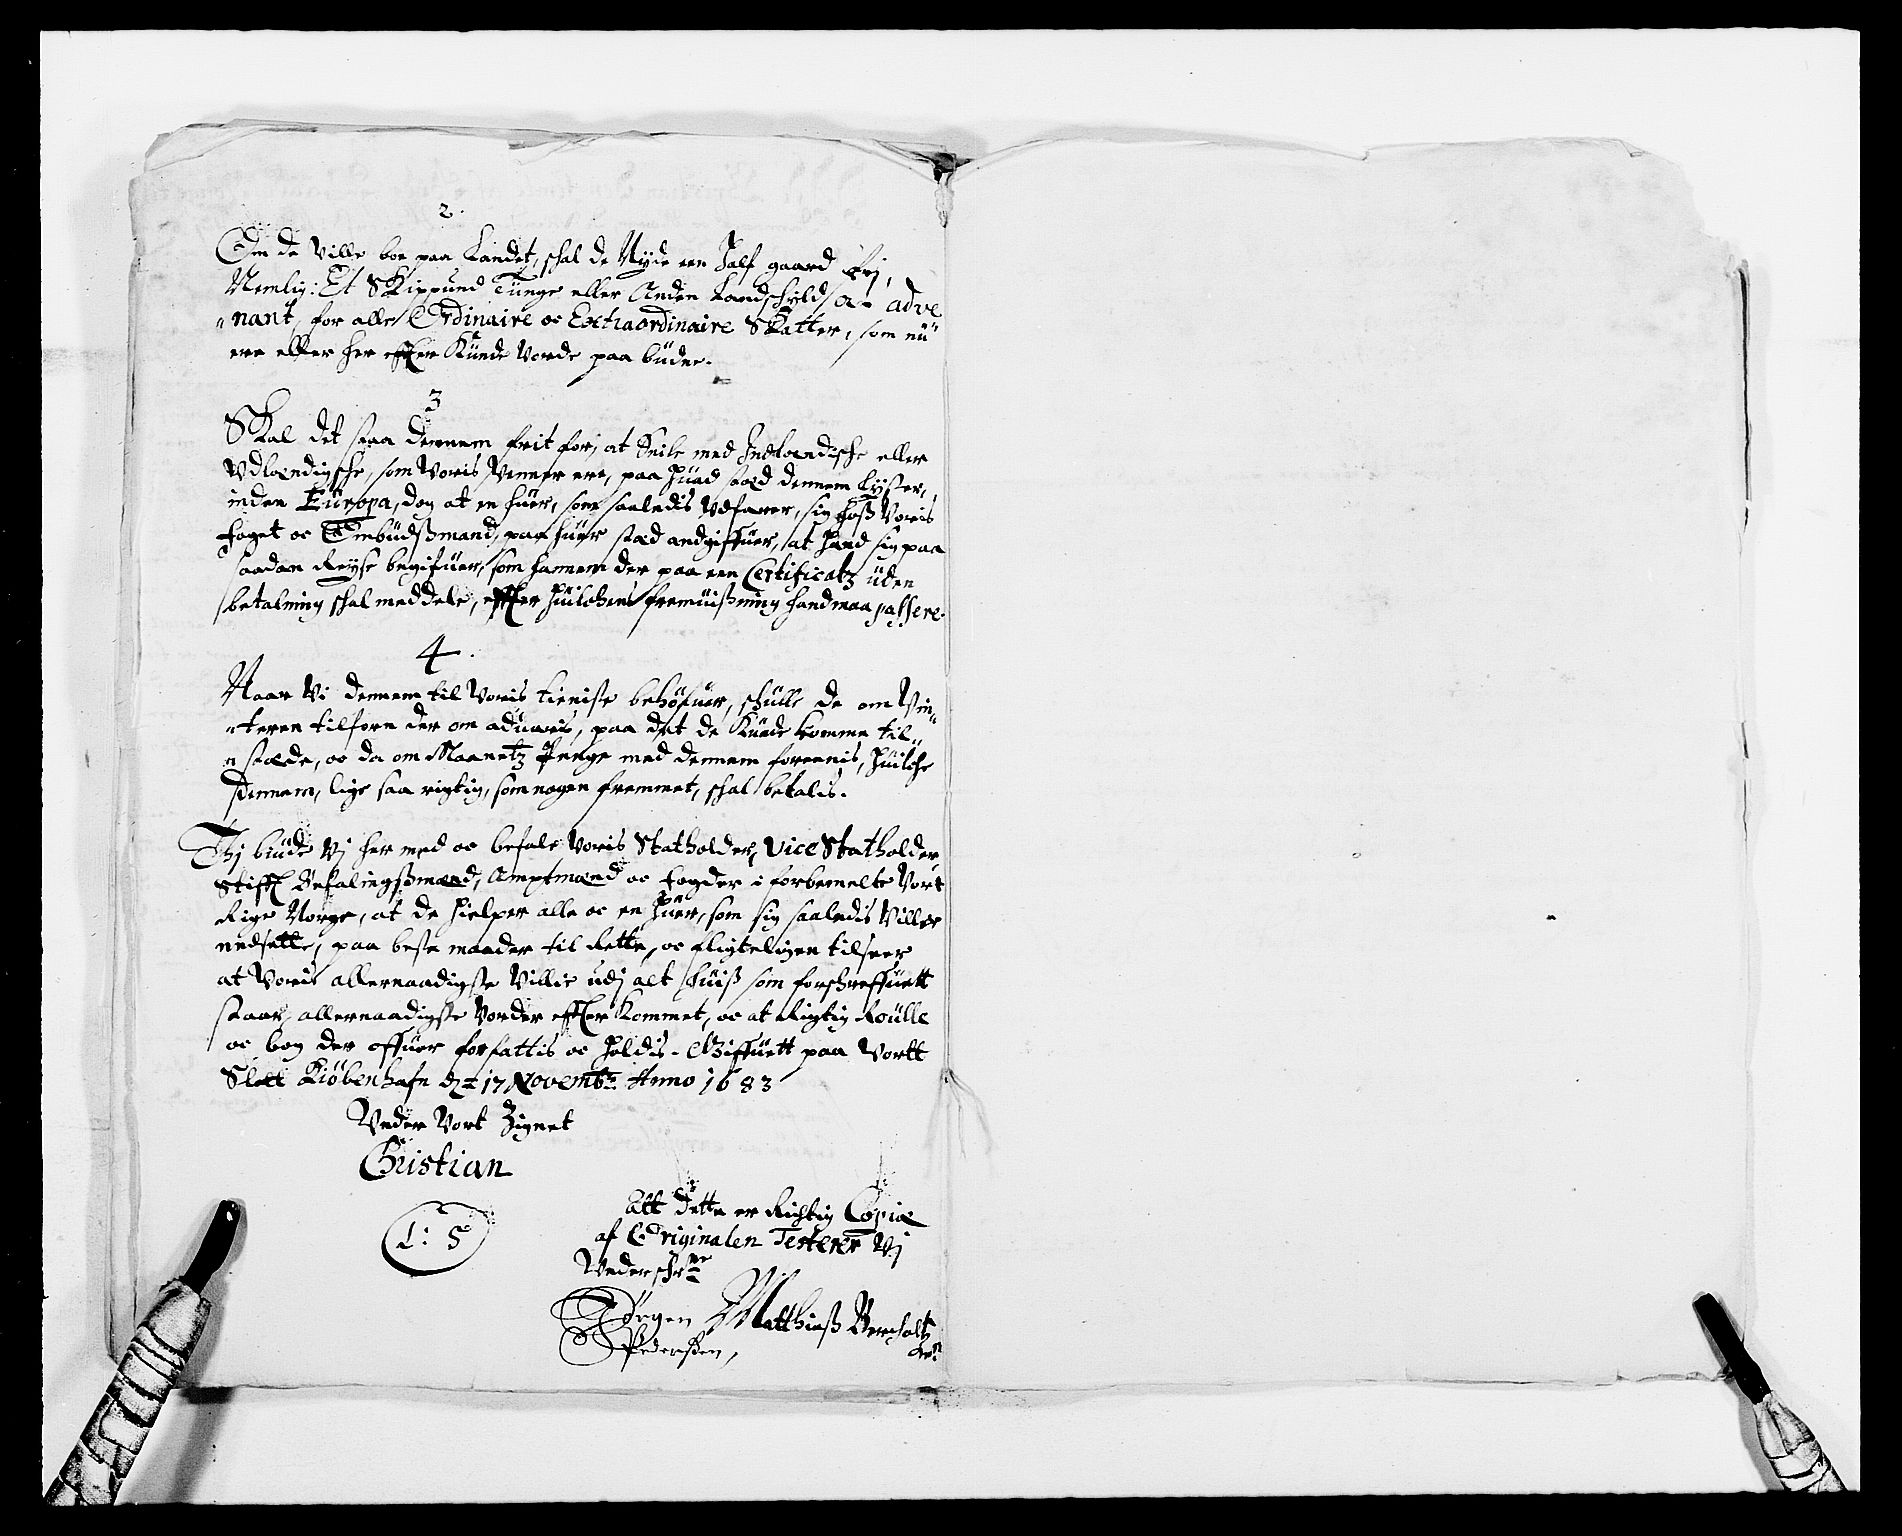 2.
Om de Ville boe paa Landet, schal de Nyde een Half gaard frj,
Nemlig: Et Skippund Tünge eller Anden Landschyld a- adve
"nant, for alle Ordinaire oc Extraordinaire Skatter, som nü
ere eller her effter Künde Vorde paa büdne.
3
Skal det staa dennem frit for, at Seile med Indlandische eller
Vdlændigsche, som Voris Venner ere, paa Hüad stæd dennem lyster,
inden Europa, dog at en huer, som saaledis Vdfarer, sig hoss Voris
foget oc Ombüdssmand, paa huer stæd andgiffuer, at Hand sig paa
saadan Reyse begifuer, som hannem der paa een Certificatz üden
betalning schal meddele, effter Hüilchens fremüissning hand maa passere.
4.
Naar Vi dennem til Voris tieniste behöfuer, schulle de om Vin-
"teren tilforn der om aduaris, paa det de Künde komme til
"stæde, oc da om Maanetz Penge med dennem foreenis, Hüilche
dennem, lige saa rigtig, som nogen fremmet, schal betalis.
Thj biüde Vj her med oc befale Voris Statholder, Vice Statholder,
Stifft Befalingssmænd, Amptmænd oc fogder i forbemelte Vort
Rige Norge, at de Hielper alle oc en Hüer, som sig saaledis Viller
nedsette, paa beste maader til Rette, oc fligteligen tilseer
at Voris allernaadigste Villie udj alt huiss som forschreffuett
staar, allernaadigste Vorder effter Kommet, oc at Rigtig Roülle
oc bog der offuer forfattis oc Holdis. Giffuett paa Vortt
Slott Kiöbenhafn d. 17 Novembr. Anno 1683
Vnder Vort Zignet
Christian
L: S
Att dette er Richtig Copia
af Originalen Testerer Vj
Vnderschrne
Jörgen Matthiass
Pederssen,